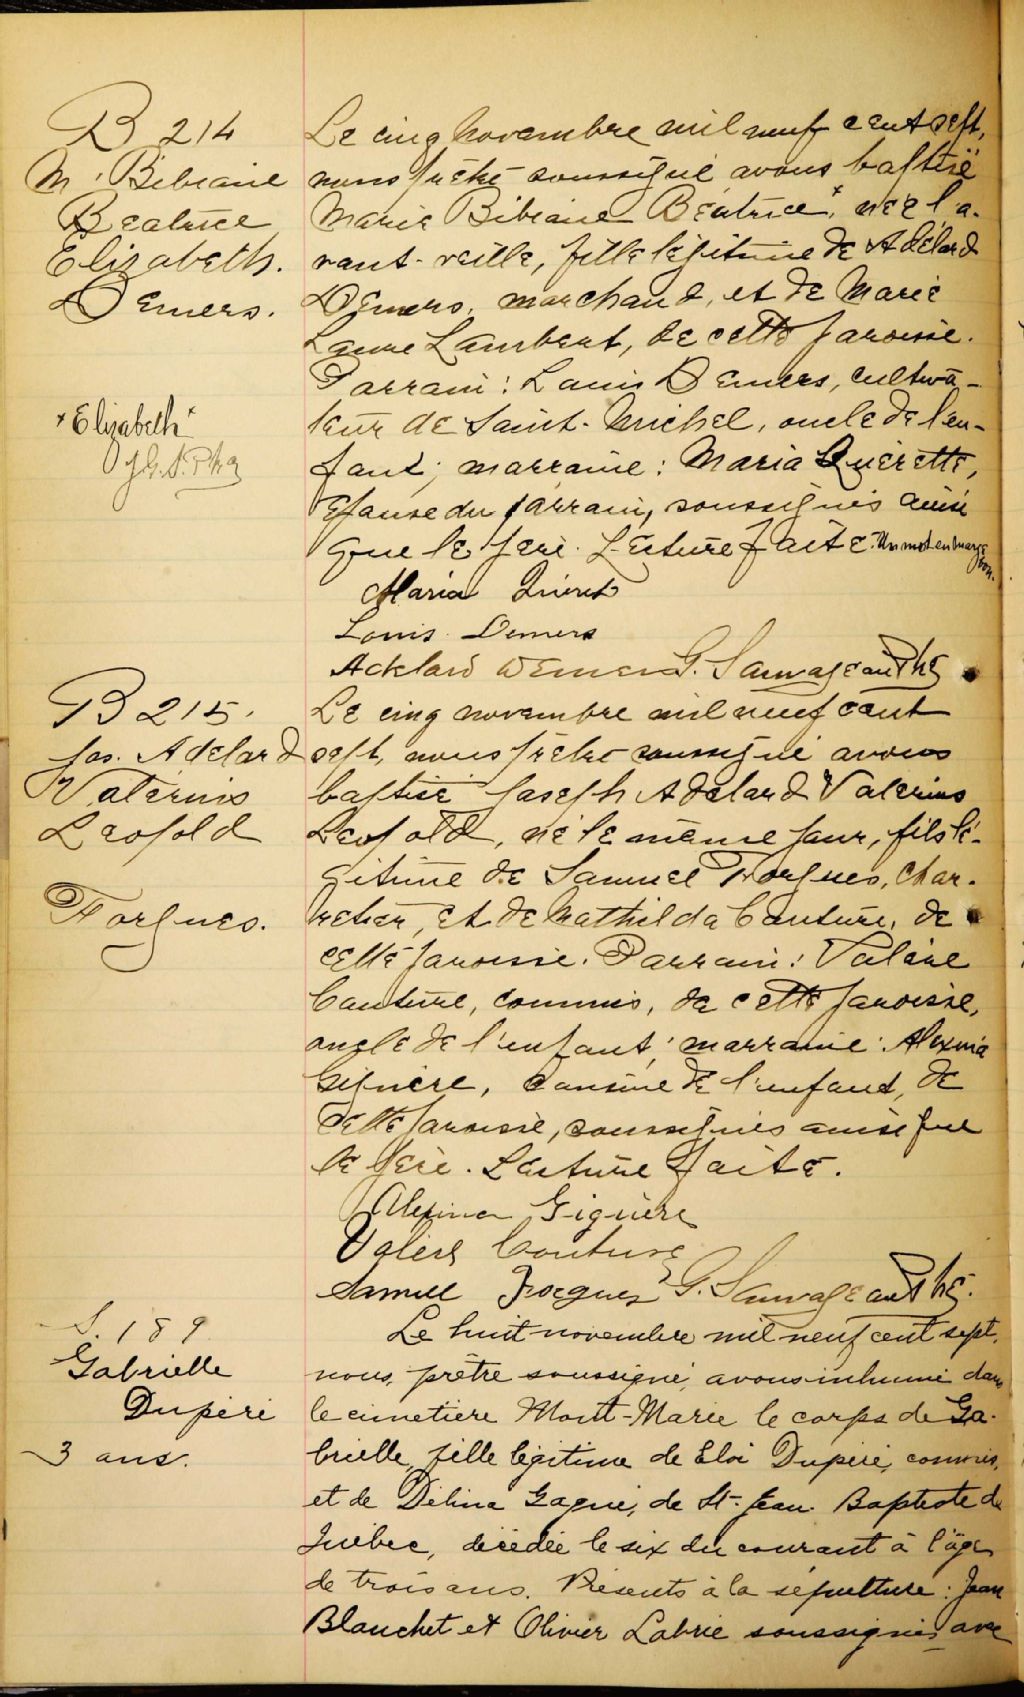 B 214
M. Bibiane
Beatrice
Elizabeth.
Demers.
Le cinq novembre mil neuf cent sept,
nous prêtre soussigné avons baptisé
Marie Bibiane Béatrice*, née l'a-
vant-veille, fille légitime de Adélard
Demers, marchand, et de Marie
Laure Lambert, de cette paroisse.
Parrain : Louis Demers, cultiva-
teur de Saint-Michel, oncle de l'en-
*Elizabeth*
fant; marraine : Maria Quérette,
épouse du parrain, soussignés ainsi
que le père. Lecture faite. Un mot en marge
bon.
Maria Quiret
Louis Demers
Adelard Demers G. Sauvageau Ptre
B 215.
Jos. Adelard
Valérius
Leopold
Forgues.
Le cinq novembre mil neuf cent
sept, nous prêtre soussigné avons
baptisé Joseph Adelard Valerius
Leopold, né le même jour, fils lé-
gitime de Samuel Forgues, char-
retier, et de Mathilda Couture, de
cette paroisse. Parrain : Valère
Couture, commis, de cette paroisse,
oncle de l'enfant; marraine : Alexina
Giguère, cousine de l'enfant, de
cette paroisse, soussignés ainsi que
le père. Lecture faite.
Alexina Giguère
Valère Couture
Samuel Forgues G. Sauvageau Ptre.
S. 189
Gabrielle
Duperé
3 ans.
Le huit novembre mil neuf cent sept,
nous, prêtre soussigné, avons inhumé dans
le cimetière Mont-Marie le corps de Ga-
brielle, fille légitime de Eloi Duperé, commis,
et de Délina Gagné, de St-Jean-Baptiste de
Québec, décédée le six du courant à l'âge
de trois ans. Présents à la sépulture : Jean
Blanchet et Olivier Labrie soussignés avec